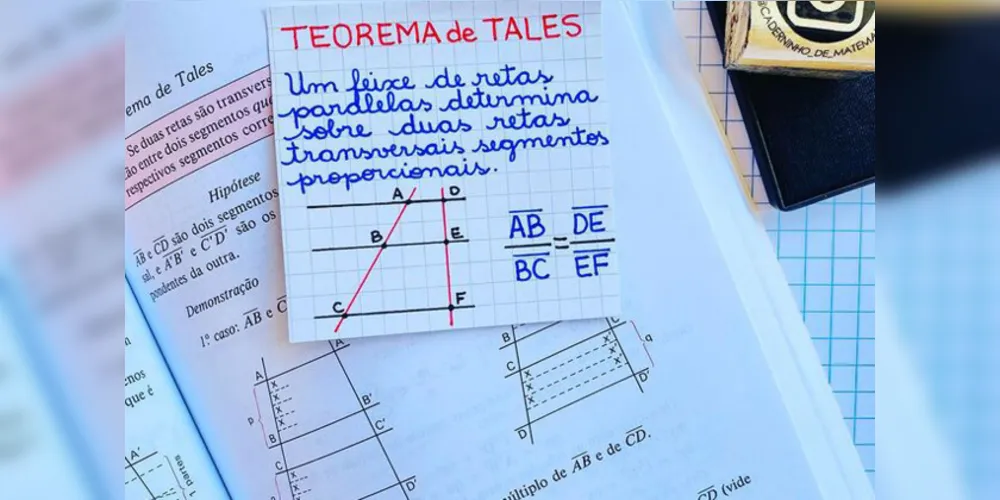 TEOREMA de TALES
Um feixe de retas
paralelas determina
sobre duas retas
transversais segmentos
proporcionais.
A D
B E
C F
AB DE
=
BC EF
@CADERNINHO_DE_MATEMA
ema de Tales
Se duas retas são transvers
ão entre dois segmentos que
respectivos segmentos corre
Hipótese
AB e CD são dois segmentos
sal, e A'B' e C'D' são os
pondentes da outra.
Demonstração
1º. caso: AB e C
A A'
x
x
x
x
p
B B'
C C'
x
x
D'
B
C
x x
x x
x x
x
q
D D'
múltiplo de AB e de CD.
CD (vide
enos
que é
A'
1 partes